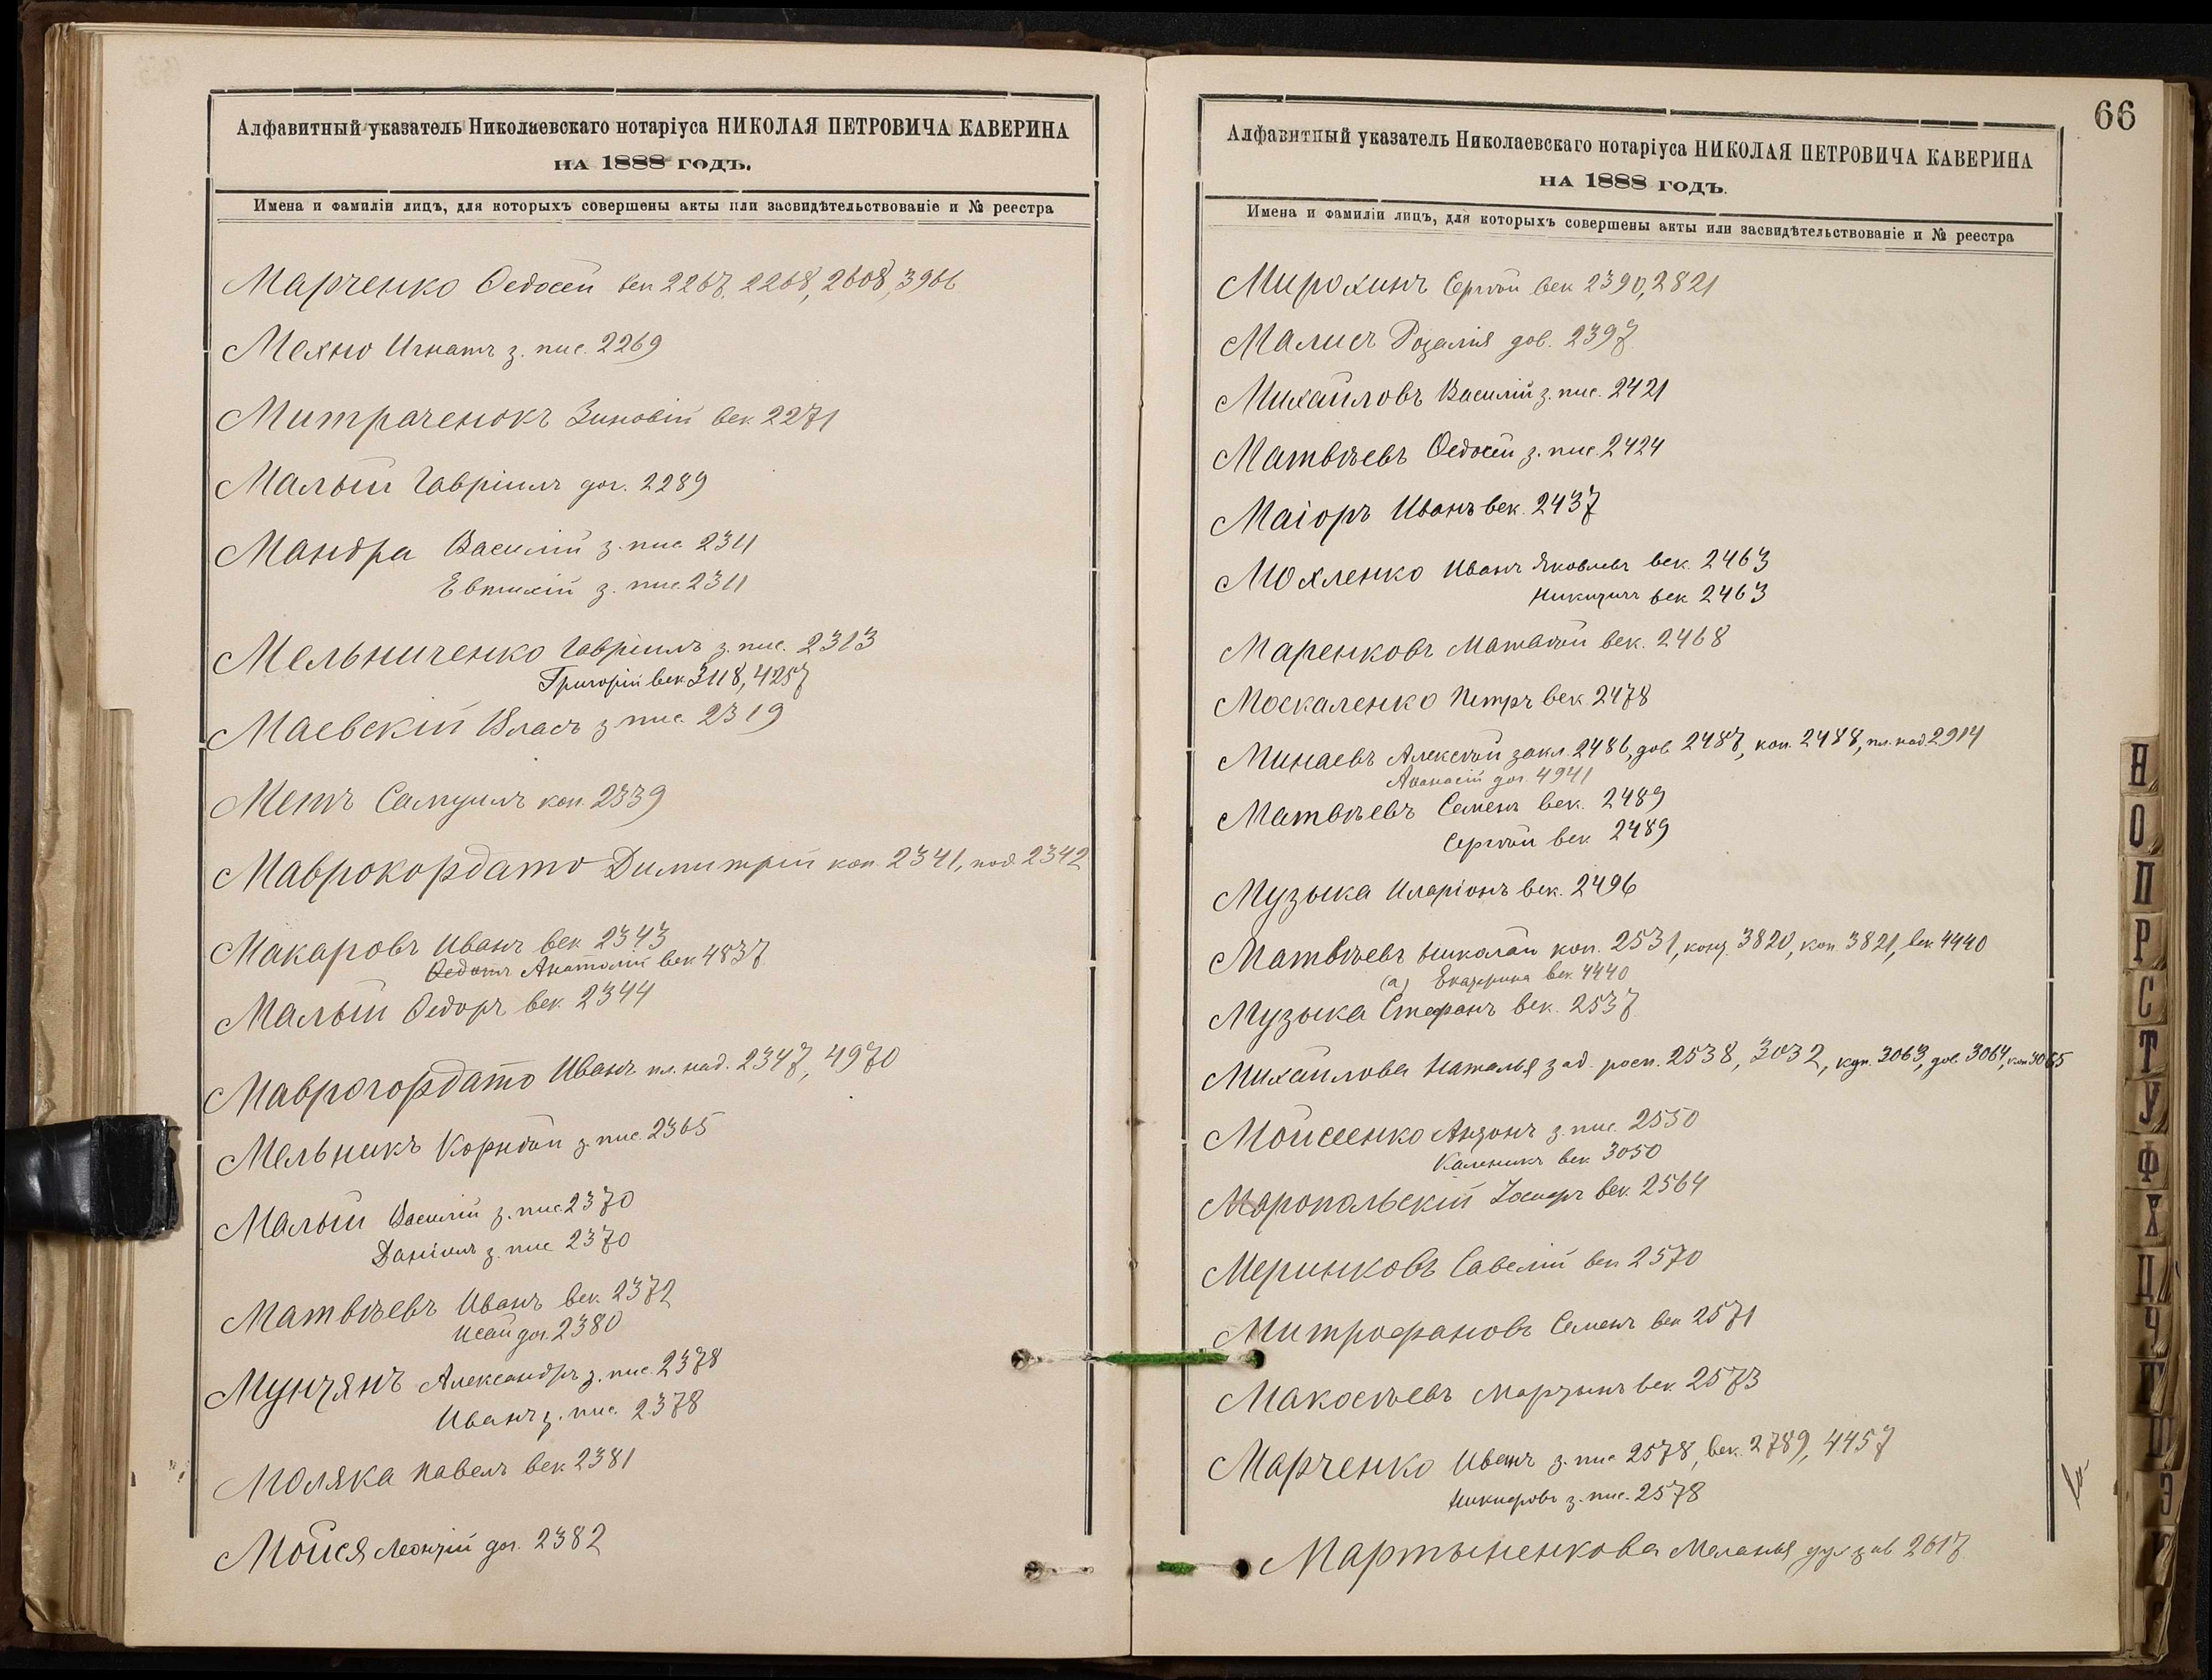 Алфавитный указатель Николаевскаго нотаріуса НИКОЛАЯ ПЕТРОВИЧА КАВЕРИНА
НА 1888 ГОДЪ.
Имена и фамиліи лицъ, для которыхъ совершены акты или засвидѣтельствованіе и № реестра
Марченко Ѳедосѣй век 2267, 2268, 2608, 3966
Мехно Игнатъ з. пис. 2269
Митраченокъ Зиновій век. 2271
Малый Гавріилъ дог. 2289
Мандра Василій з. пис 2311
Евтихій з. пис. 2311
Мельниченко Гавріилъ з. пис. 2313
Григорій век. 3118, 4257
Маевскій Власъ з пис. 2319
Метъ Самуилъ коп. 2339
Маврокордато Димитрій коп. 2341, под. 2342
Макаровъ Иванъ век 2343
Ѳедотъ Анатолій век 4837
Малый Ѳедоръ век. 2344
Маврогордато Иванъ пл. над. 2347, 4970
Мельникъ Корнѣй з. пис. 2365
Малый Василій з. пис. 2370
Даніилъ з. пис 2370
Матвѣевъ Иванъ век. 2372
Исай дог. 2380
Мунтянъ Александръ з. пис. 2378
Иванъ з. пис. 2378
Моляка Павелъ век. 2381
Мойся Леонтій дог. 2382
66
Алфавитный указатель Николаевскаго нотаріуса НИКОЛАЯ ПЕТРОВИЧА КАВЕРИНА
НА 1888 ГОДЪ.
Имена и фамиліи лицъ, для которыхъ совершены акты или засвидѣтельствованіе и № реестра
Мирохинъ Сергѣй век 2390, 2821
Малисъ Розалія дов. 2397
Михайловъ Василій з. пис. 2421
Матвѣевъ Ѳедосѣй з. пис. 2424
Маіоръ Иванъ век. 2437
Мохленко Иванъ Яковлевъ век. 2463
век 2463
Маренковъ Матвѣй век. 2468
Москаленко Петръ век 2478
Минаевъ Алексѣй закл. 2486, дов 2487, коп. 2488, пл. над 2914
Аѳанасій дог. 4941
Матвѣевъ Семенъ век. 2489
Сергѣй век 2489
Музыка Иларіонъ век. 2496
Матвѣевъ Николай коп. 2531, конт. 3820, коп. 3821, век 4440
(а) Екатерина век. 4440
Музыка Стефанъ век. 2537
Михайлова Наталья зад. росп. 2538, 3032, куп. 3063, дов. 3064, коп 3065
Мойсеенко Антонъ з. пис. 2550
Каленикъ век 3050
Маропольскій Іосифъ век. 2564
Меринковъ Савелій век 2570
Митрофановъ Семенъ век 2571
Макосѣевъ Мартынъ век. 2573
Марченко Иванъ з. пис 2578, век. 2789, 4457
Никифоръ з. пис. 2578
Мартыненкова Меланья дух зав 2617
Н
О
П
Р
С
Т
У
Ф
Х
Ц
Ч
Ш
Э